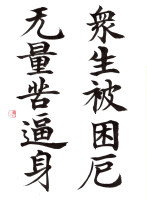 衆生被困厄
无量苦逼身